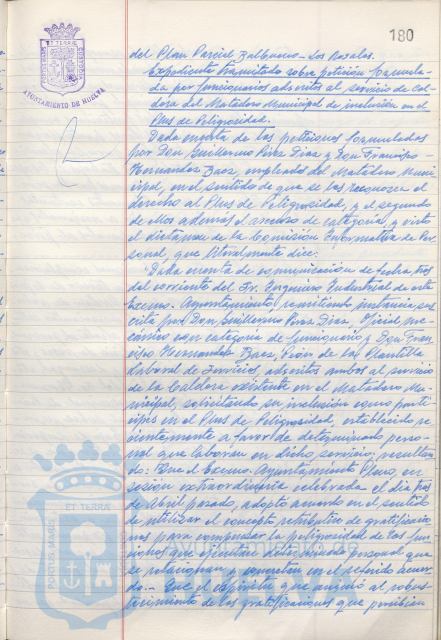 180
AYUNTAMIENTO DE HUELVA
del Plan Parcial Balbueno-Los Rosales.
Expediente tramitado sobre petición formula-
da por funcionarios adscritos al servicio de Cal-
dera del Matadero Municipal de inclusión en el
Plus de Peligrosidad.
Dada cuenta de las peticiones formuladas
por Don Guillermo Pérez Díaz y Don Francisco
Hernández Baez, empleados del Matadero Muni-
cipal, en el sentido de que se les reconozca el
derecho al Plus de Peligrosidad, y el segundo
de ellos además el ascenso de categoría, y visto
el dictamen de la Comisión Informativa de Per-
sonal, que literalmente dice:
"Dada cuenta de comunicación de fecha tres
del corriente del Sr. Ingeniero Industrial de este
Excmo. Ayuntamiento, remitiendo instancia sus-
crita por Don Guillermo Pérez Díaz, Oficial me-
cánico con categoría de funcionario y Don Fran-
cisco Hernández Baez, Peón de la Plantilla
laboral de Servicios, adscritos ambos al servicio
de la Caldera existente en el Matadero Mu-
nicipal, solicitando su inclusión como partí-
cipes en el Plus de Peligrosidad, establecido re-
cientemente a favor de determinado perso-
nal que laboran en dicho servicio; resultan-
do: Que el Excmo. Ayuntamiento Pleno, en
sesión extraordinaria celebrada el día tres
de Abril pasado, adoptó acuerdo en el sentido
de utilizar el concepto retributivo de gratificacio-
nes para compensar la peligrosidad de las fun-
ciones que ejecutan determinado personal que
se relacionan y concretan en el referido acuer-
do.- Que el espíritu que animó al
de las gratificaciones que percibían
ET TERRÆ
PORTUS MARIS
CUSTODIA